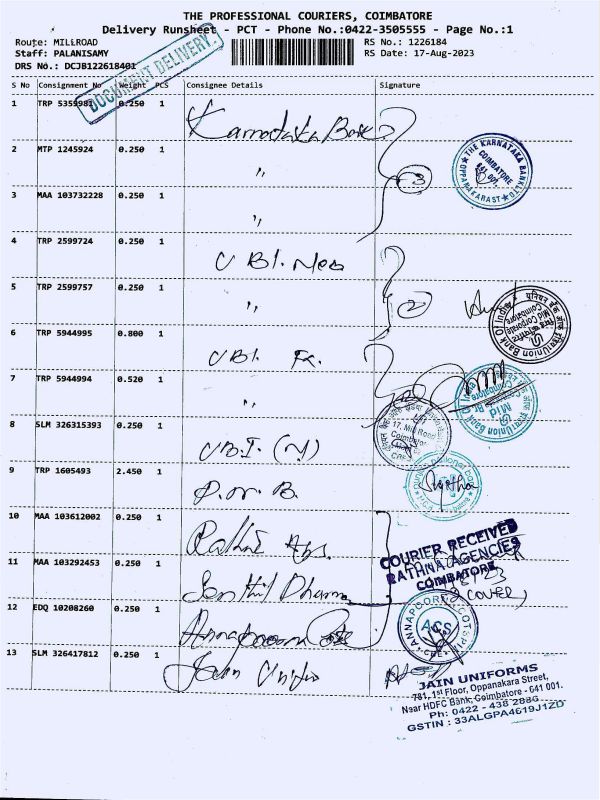 THE PROFESSIONAL COURIERS, COIMBATORE
Delivery Runsheet - PCT - Phone No.:0422-3505555 - Page No.:1
Route: MILLROAD
RS No.: 1226184
Staff: PALANISAMY
RS Date: 17-Aug-2023
DRS No.: DCJB122618401
DOCUMENT DELIVERY
S No Consignment No Weight PCS Consignee Details Signature
1 TRP 5359981 0.250 1 Karnataka Bank
2 MTP 1245924 0.250 1 "
3 MAA 103732228 0.250 1 "
3
THE KARNATAKA BANK LTD
COIMBATORE
641 001.
OPPANAKARA ST
4 TRP 2599724 0.250 1 UBI.
5 TRP 2599757 0.250 1 "
2
Union Bank Of India
Mid Corporate
Coimbatore
6 TRP 5944995 0.800 1 UBI.
7 TRP 5944994 0.520 1 "
8 SLM 326315393 0.250 1 U.B.I (N)
17. Mill Road
Coimbatore
9 TRP 1605493 2.450 1 P.N. B.
10 MAA 103612002 0.250 1 Rathi
11 MAA 103292453 0.250 1 Senthil Dharma
COURIER RECEIVED
RATHNA AGENCIES
COIMBATORE
12 EDQ 10208260 0.250 1 Annapoorna
13 SLM 326417812 0.250 1 Jain Unifo
JAIN UNIFORMS
781, 1st Floor, Oppanakara Street,
Naar HDFC Bank, Coimbatore - 641 001.
Ph: 0422 - 438 2886
GSTIN : 33ALGPA4619J1ZD